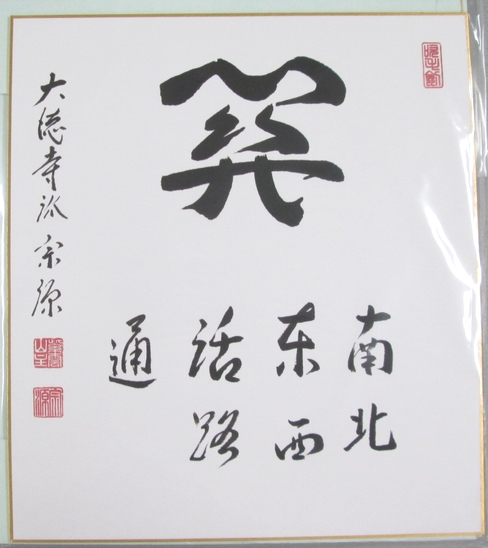 関
南北
東西
活路
通
大徳寺派 宗源
宗源